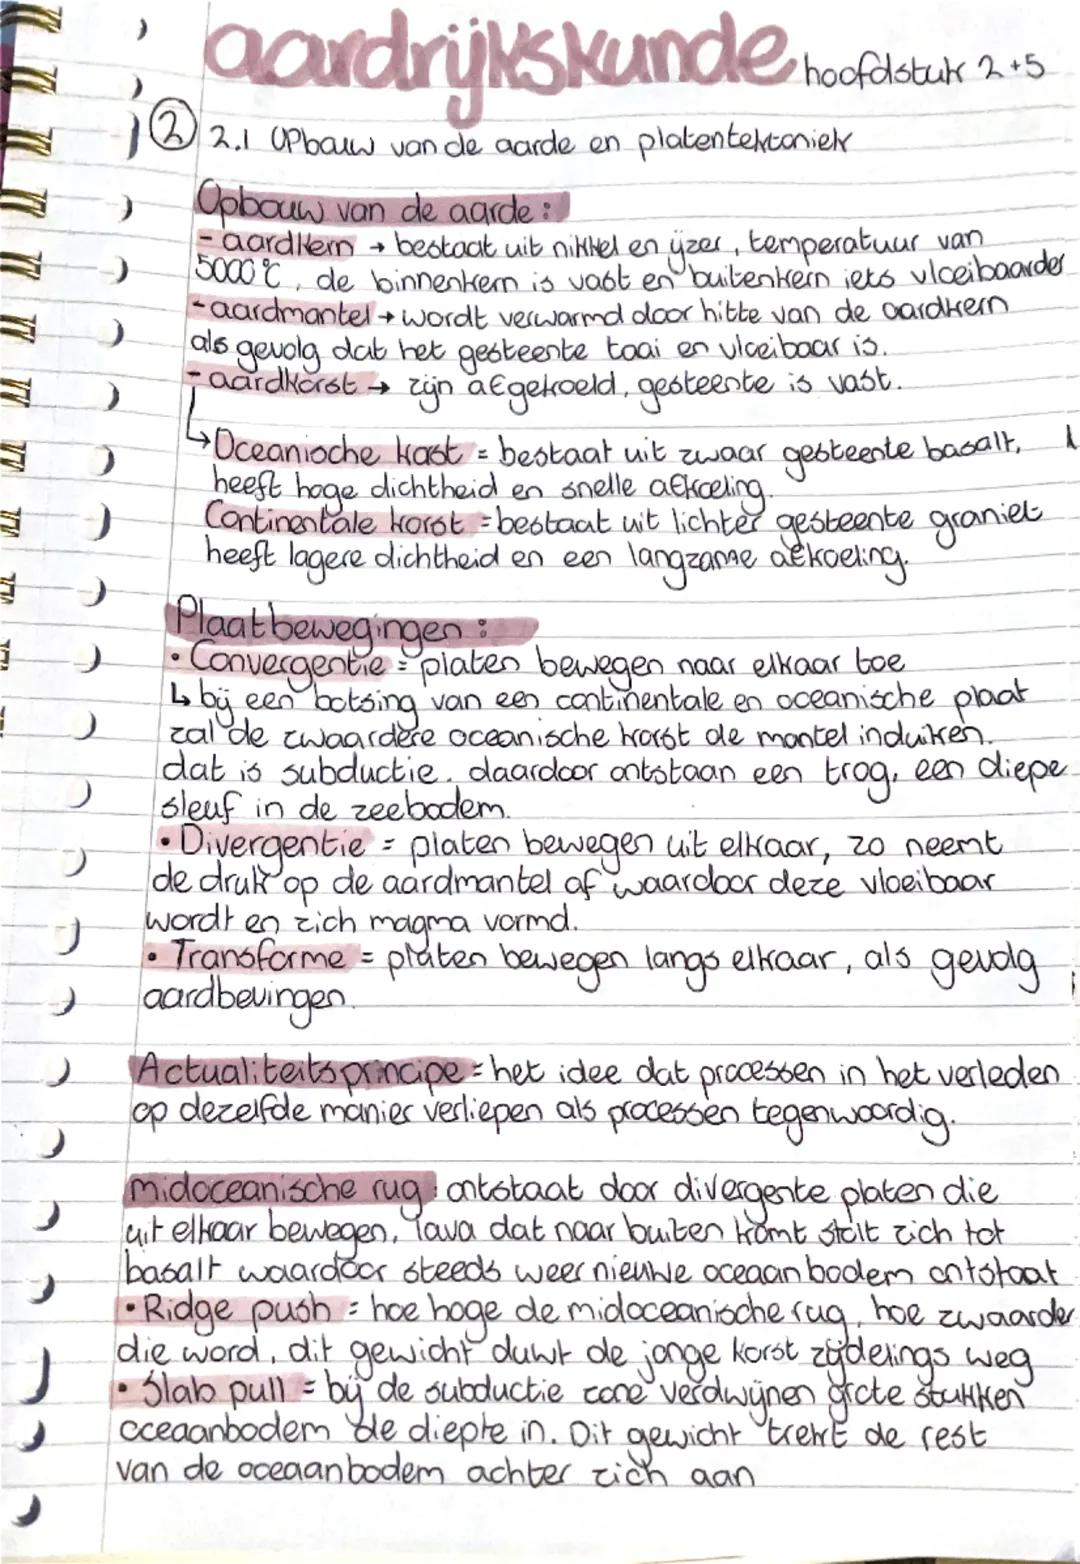 aardrijkskunde hoofdstuk 2+5
② 2.1 Opbouw van de aarde en platentektoniek
Opbouw van de aarde:
- aardkern → bestaat uit nikkel en ijzer, temperatuur van
5000 °C, de binnenkern is vast en buitenkern iets vloeibaarder
- aardmantel → wordt verwarmd door hitte van de aardkern
als gevolg dat het gesteente taai en vloeibaar is.
- aardkorst → zijn afgekoeld, gesteente is vast.
↳ Oceanische korst = bestaat uit zwaar gesteente basalt,
heeft hoge dichtheid en snelle afkoeling.
Continentale korst = bestaat uit lichter gesteente graniet
heeft lagere dichtheid en een langzame afkoeling.
Plaatbewegingen:
• Convergentie = platen bewegen naar elkaar toe
↳ bij een botsing van een continentale en oceanische plaat
zal de zwaardere oceanische korst de mantel induiken.
dat is subductie. daardoor ontstaan een trog, een diepe
sleuf in de zeebodem.
• Divergentie = platen bewegen uit elkaar, zo neemt
de druk op de aardmantel af waardoor deze vloeibaar
wordt en zich magma vormd.
• Transforme = platen bewegen langs elkaar, als gevolg
aardbevingen.
Actualiteitsprincipe = het idee dat processen in het verleden
op dezelfde manier verliepen als processen tegenwoordig.
midoceanische rug: ontstaat door divergente platen die
uit elkaar bewegen, lava dat naar buiten komt stolt zich tot
basalt waardoor steeds weer nieuwe oceaanbodem ontstaat
• Ridge push = hoe hoge de midoceanische rug, hoe zwaarder
die word, dit gewicht duwt de jonge korst zijdelings weg
• Slab pull = bij de subductie zone verdwijnen grote stukken
oceaanbodem de diepte in. Dit gewicht trekt de rest
van de oceaanbodem achter zich aan